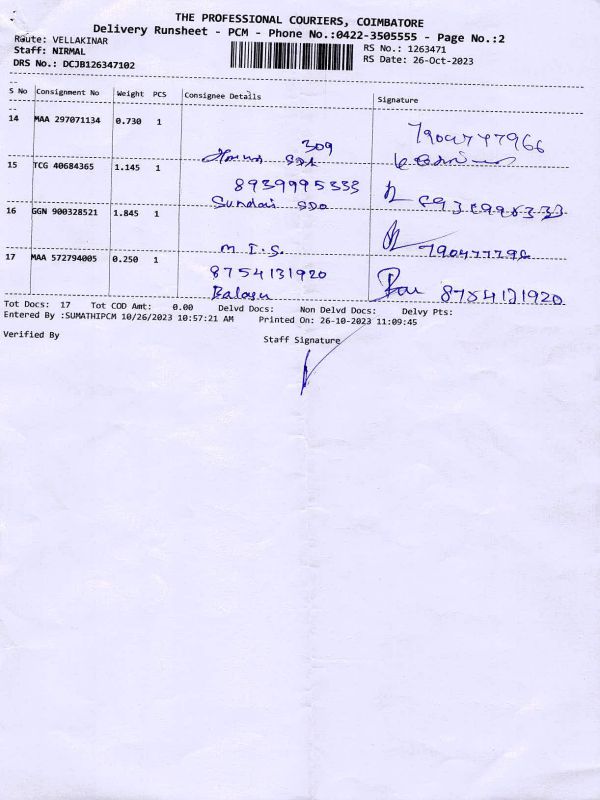 THE PROFESSIONAL COURIERS, COIMBATORE
Delivery Runsheet - PCM - Phone No.:0422-3505555 - Page No.:2
Route: VELLAKINAR
RS No.: 1263471
Staff: NIRMAL
RS Date: 26-Oct-2023
DRS No.: DCJB126347102
S No Consignment No Weight PCS Consignee Details Signature
14 MAA 297071134 0.730 1
309
15 TCG 40684365 1.145 1
8939995333
16 GGN 900328521 1.845 1
M I S.
790477796
17 MAA 572794005 0.250 1
8754131920
8754121920
Tot Docs: 17 Tot COD Amt: 0.00 Delvd Docs: Non Delvd Docs: Delvy Pts:
Entered By :SUMATHIPCM 10/26/2023 10:57:21 AM Printed On: 26-10-2023 11:09:45
Verified By
Staff Signature